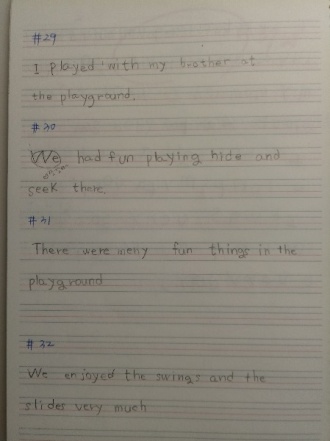 #29
I played with my brother at
the playground.
#30
We had fun playing hide and
seek there.
#31
There were meny fun things in the
playground
#32
We enjoyed the swings and the
slides very much